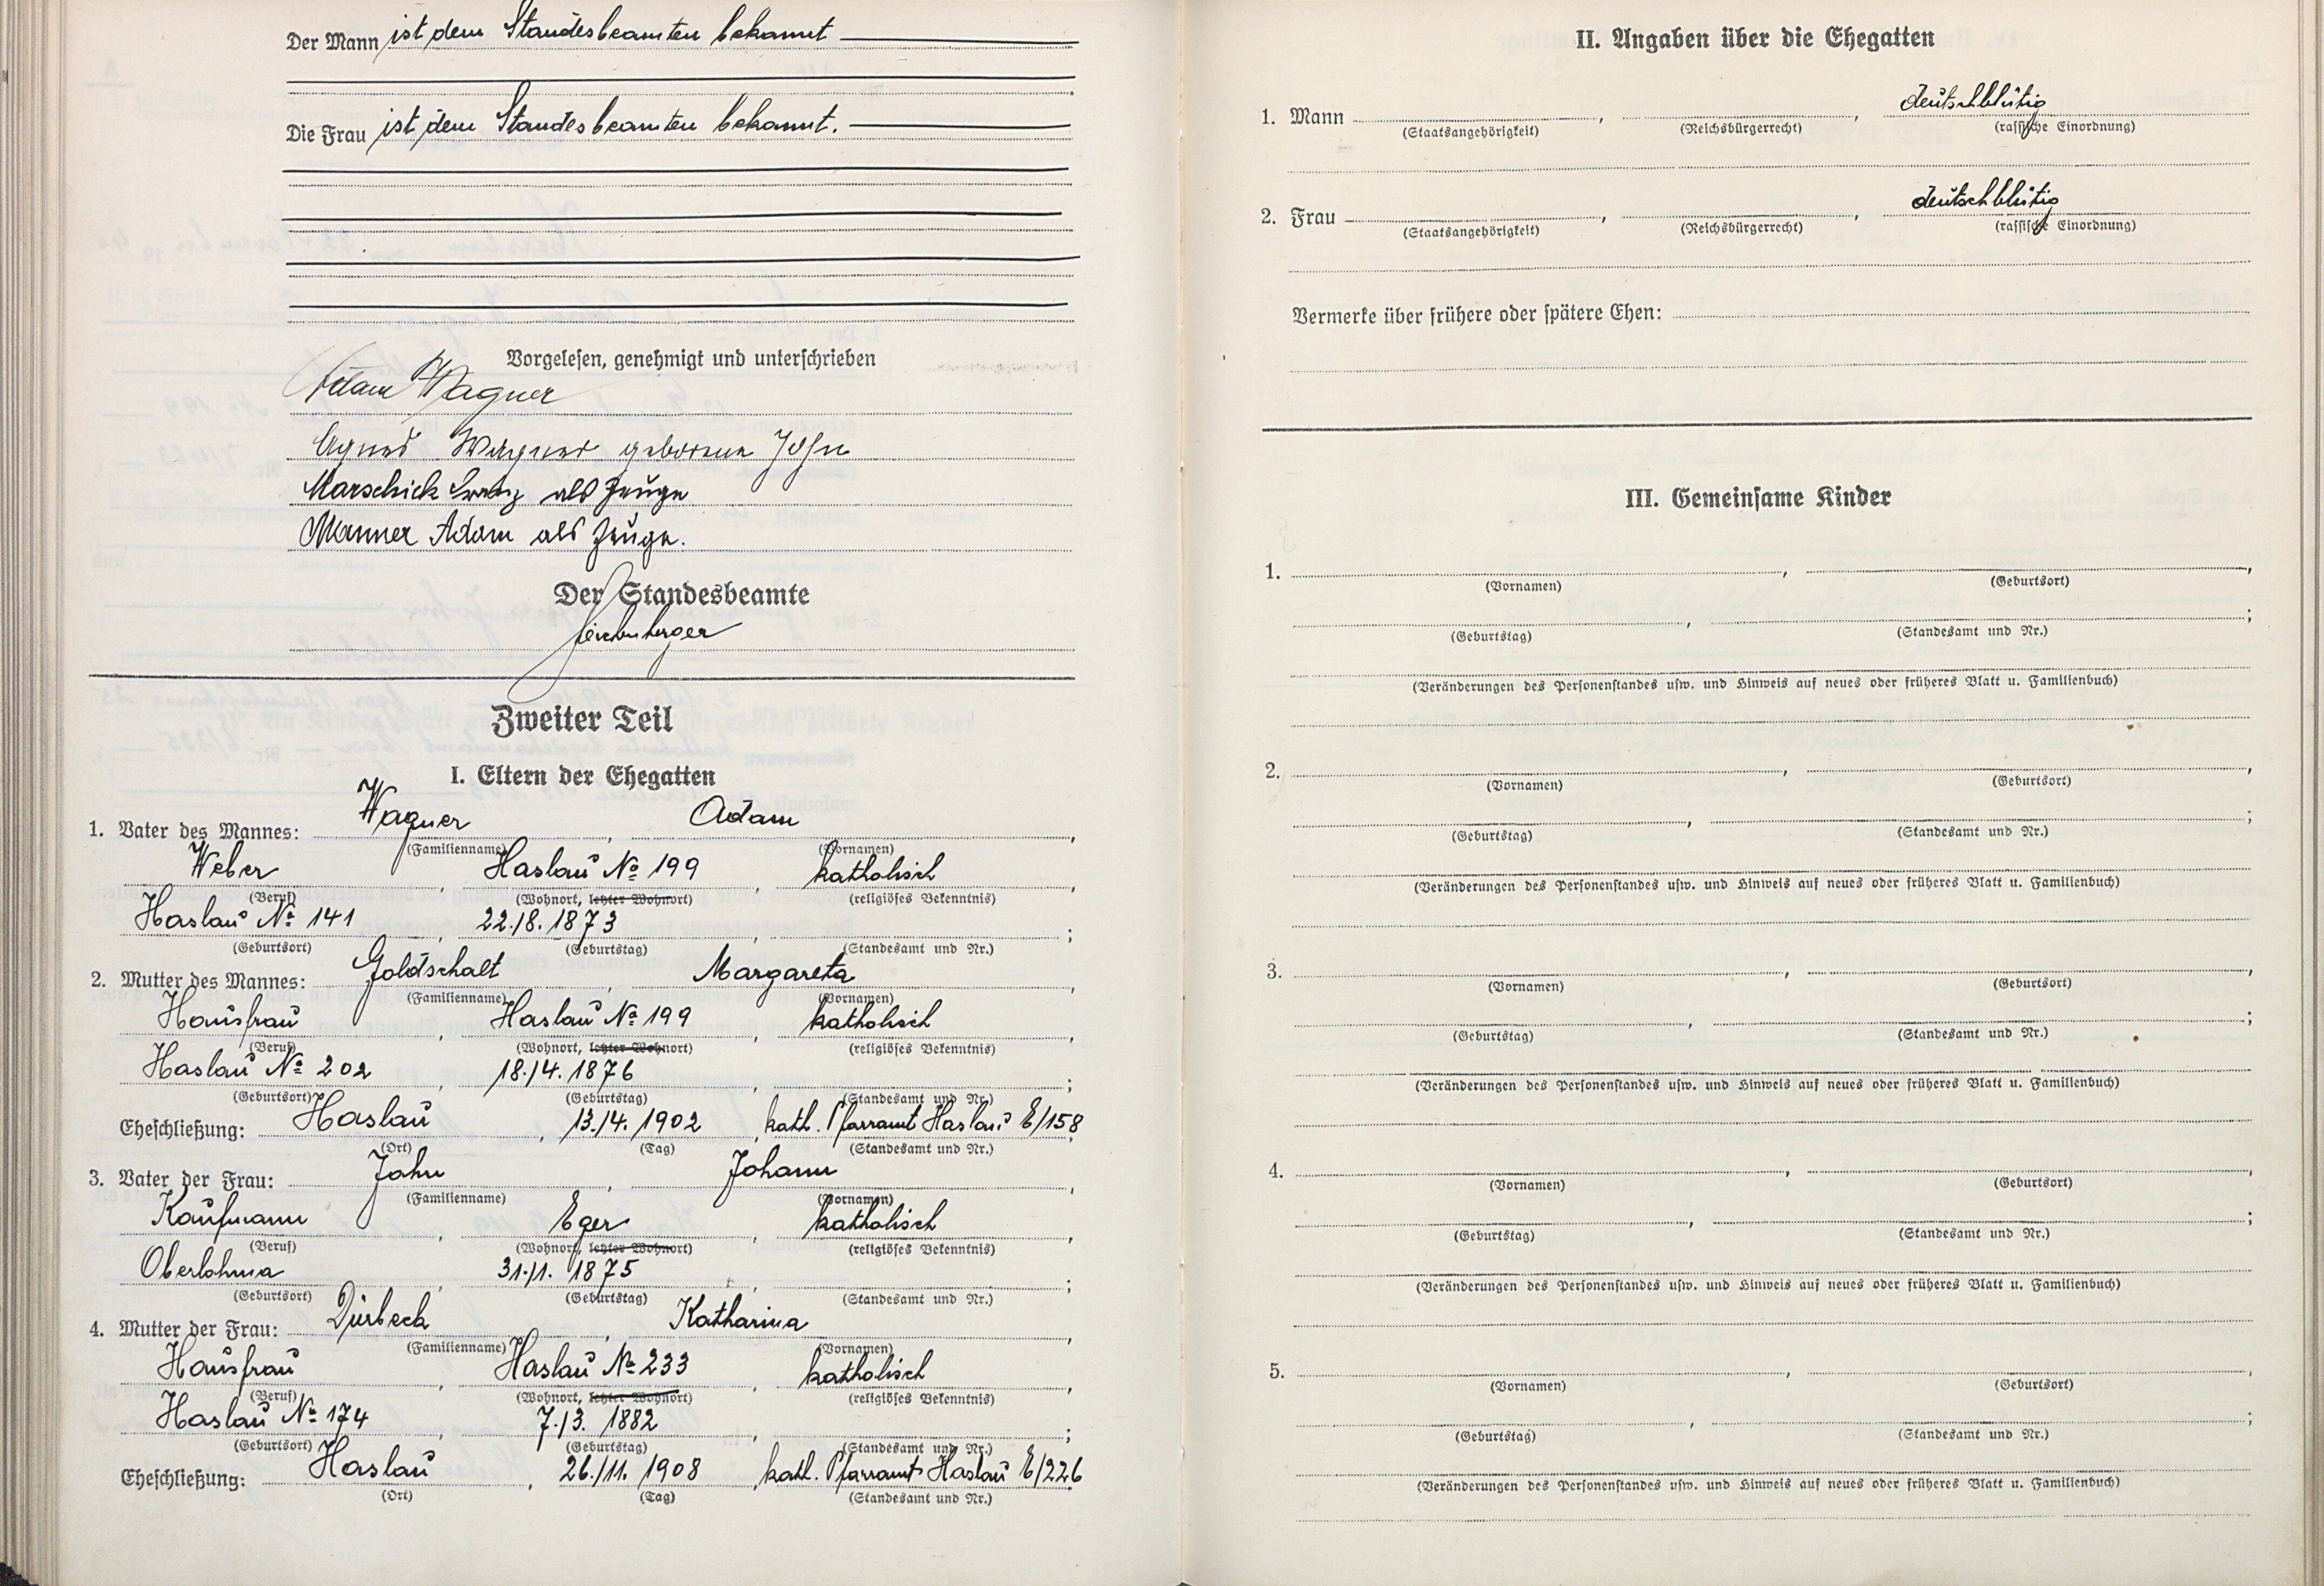 Der Mann ist dem Standesbeamten bekannt
Die Frau ist dem Standesbeamten bekannt.
Vorgelesen, genehmigt und unterschrieben
Adam Wagner
Agnes Wagner geborene John
Marschick Franz als Zeuge
Manner Adam als Zeuge.
Der Standesbeamte
Zweiter Teil
I. Eltern der Ehegatten
1. Vater des Mannes: Wagner, Adam,
(Familienname) (Vornamen)
Weber, Haslau № 199, katholisch,
(Beruf) (Wohnort, letzter Wohnort) (religiöses Bekenntnis)
Haslau № 141, 22./8. 1873, ;
(Geburtsort) (Geburtstag) (Standesamt und Nr.)
2. Mutter des Mannes: Goldschalt, Margareta,
(Familienname) (Vornamen)
Hausfrau, Haslau № 199, katholisch,
(Beruf) (Wohnort, letzter Wohnort) (religiöses Bekenntnis)
Haslau № 202, 18./4. 1876, ;
(Geburtsort) (Geburtstag) (Standesamt und Nr.)
Eheschließung: Haslau, 13./4. 1902, kath. Pfarramt Haslau E/158;
(Ort) (Tag) (Standesamt und Nr.)
3. Vater der Frau: John, Johann,
(Familienname) (Vornamen)
Kaufmann, Eger, katholisch,
(Beruf) (Wohnort, letzter Wohnort) (religiöses Bekenntnis)
Oberlohma, 31./1. 1875, ;
(Geburtsort) (Geburtstag) (Standesamt und Nr.)
4. Mutter der Frau: Dürbeck, Katharina,
(Familienname) (Vornamen)
Hausfrau, Haslau № 233, katholisch,
(Beruf) (Wohnort, letzter Wohnort) (religiöses Bekenntnis)
Haslau № 174, 7./3. 1882, ;
(Geburtsort) (Geburtstag) (Standesamt und Nr.)
Eheschließung: Haslau, 26./11. 1908, kath. Pfarramt Haslau E/226.
(Ort) (Tag) (Standesamt und Nr.)
II. Angaben über die Ehegatten
1. Mann , , deutschblütig
(Staatsangehörigkeit) (Reichsbürgerrecht) (rassische Einordnung)
2. Frau , , deutschblütig
(Staatsangehörigkeit) (Reichsbürgerrecht) (rassische Einordnung)
Vermerke über frühere oder spätere Ehen:
III. Gemeinsame Kinder
1. , ,
(Vornamen) (Geburtsort)
, ;
(Geburtstag) (Standesamt und Nr.)
(Veränderungen des Personenstandes usw. und Hinweis auf neues oder früheres Blatt u. Familienbuch)
2. , ,
(Vornamen) (Geburtsort)
, ;
(Geburtstag) (Standesamt und Nr.)
(Veränderungen des Personenstandes usw. und Hinweis auf neues oder früheres Blatt u. Familienbuch)
3. , ,
(Vornamen) (Geburtsort)
, ;
(Geburtstag) (Standesamt und Nr.)
(Veränderungen des Personenstandes usw. und Hinweis auf neues oder früheres Blatt u. Familienbuch)
4. , ,
(Vornamen) (Geburtsort)
, ;
(Geburtstag) (Standesamt und Nr.)
(Veränderungen des Personenstandes usw. und Hinweis auf neues oder früheres Blatt u. Familienbuch)
5. , ,
(Vornamen) (Geburtsort)
, ;
(Geburtstag) (Standesamt und Nr.)
(Veränderungen des Personenstandes usw. und Hinweis auf neues oder früheres Blatt u. Familienbuch)